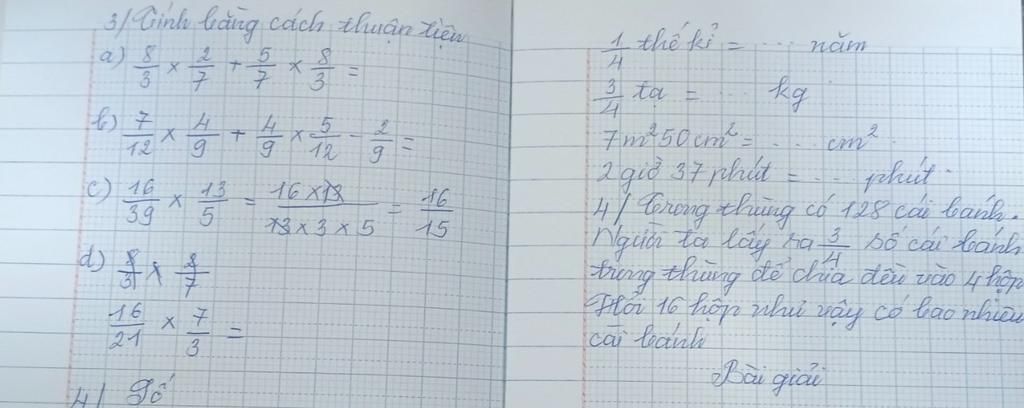 3/ Tính bằng cách thuận tiện
a) 8/3 × 2/7 + 5/7 × 8/3 =
b) 7/12 × 4/9 + 4/9 × 5/12 - 2/9 =
c) 16/39 × 13/5 = 16 × 13 / 13 × 3 × 5 = 16/15
d) 8/3 × 2/7
16/21 × 7/3 =
4/ Số
1/4 thế kỉ = ... năm
3/4 tạ = ... kg
7m² 50cm² = ... cm²
2 giờ 37 phút = ... phút
4/ Trong thùng có 128 cái bánh.
Người ta lấy ra 3/4 số cái bánh
trong thùng để chia đều vào 4 hộp
Hỏi 16 hộp như vậy có bao nhiêu
cái bánh
Bài giải